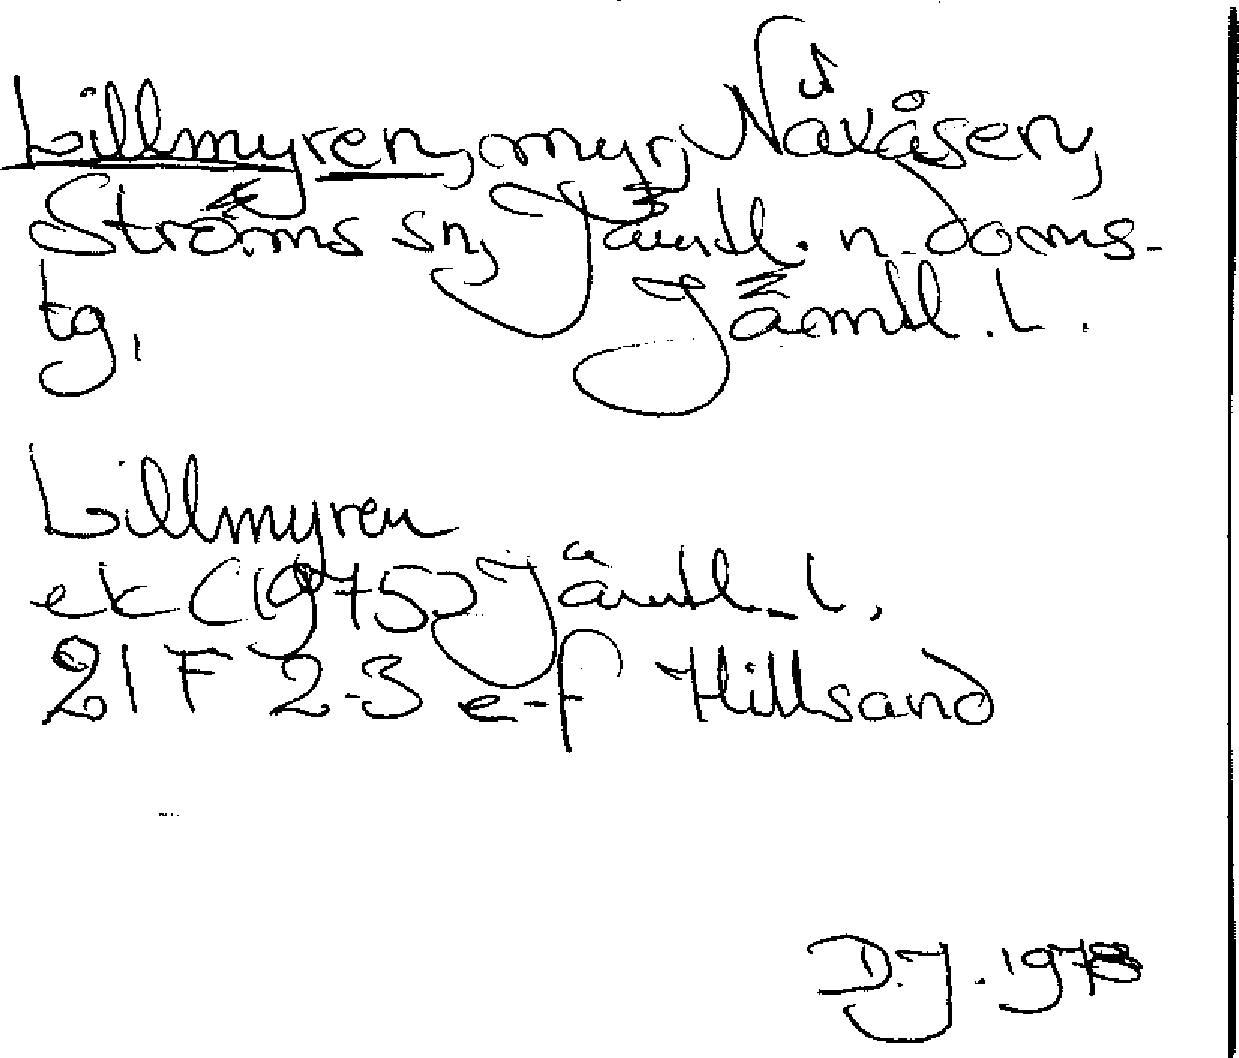 Lillmyren, myr, Nåvåsen,
Ströms sn, Jämtl. n. doms-
tg, Jämtl. l.
Lillmyren
ek (1975) Jämtl. l.
21 F 2-3 e-f Hillsand
D.J. 1975